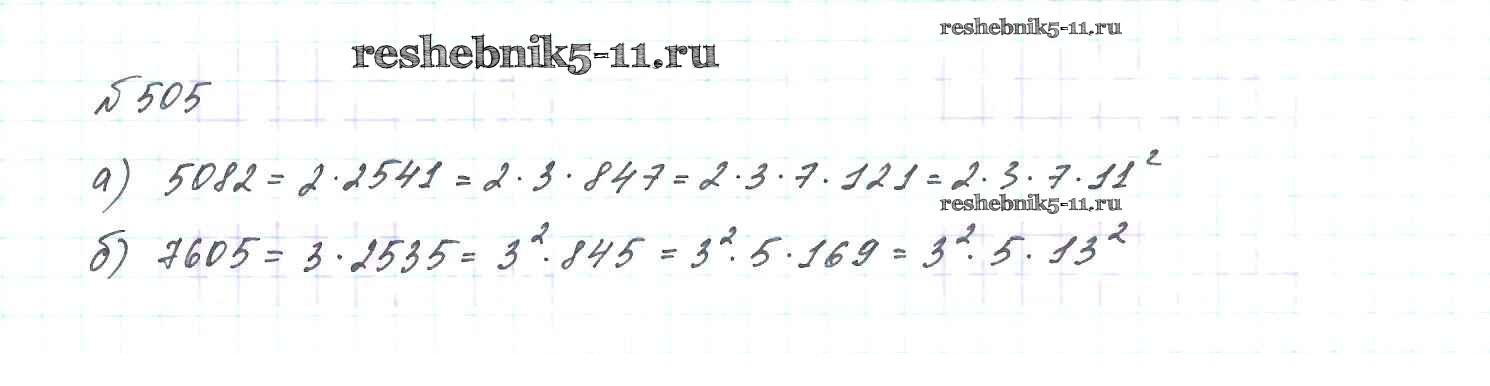 reshebnik5-11.ru
reshebnik5-11.ru
№505
а) 5082 = 2·2541 = 2·3·847 = 2·3·7·121 = 2·3·7·11²
reshebnik5-11.ru
б) 7605 = 3·2535 = 3²·845 = 3²·5·169 = 3²·5·13²